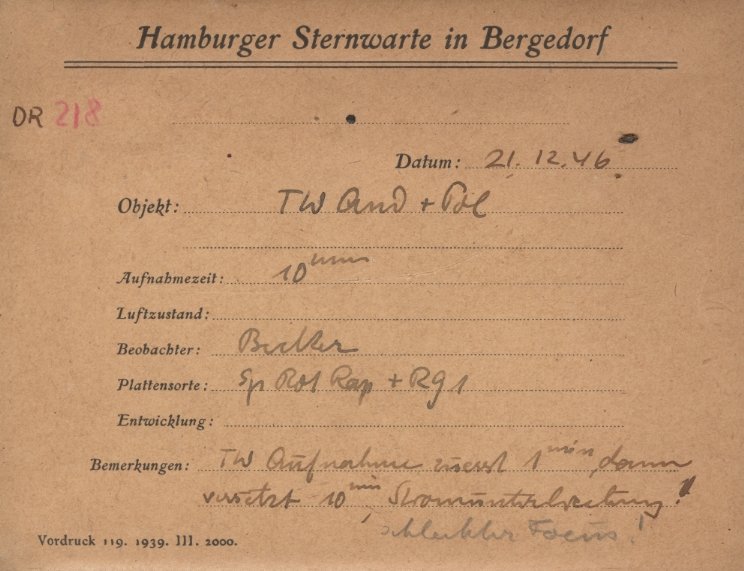 Hamburger Sternwarte in Bergedorf
DR 218
Datum: 21. 12. 46
Objekt: TW And + Pol
Aufnahmezeit: 10 min
Luftzustand:
Beobachter: Becker
Plattensorte: Sp Rot Rap + RG1
Entwicklung:
Bemerkungen: TW Aufnahme zuerst 1 min, dann
versetzt 10 min, Stromunterbrechung!
schlechter Focus!
Vordruck 119. 1939. III. 2000.